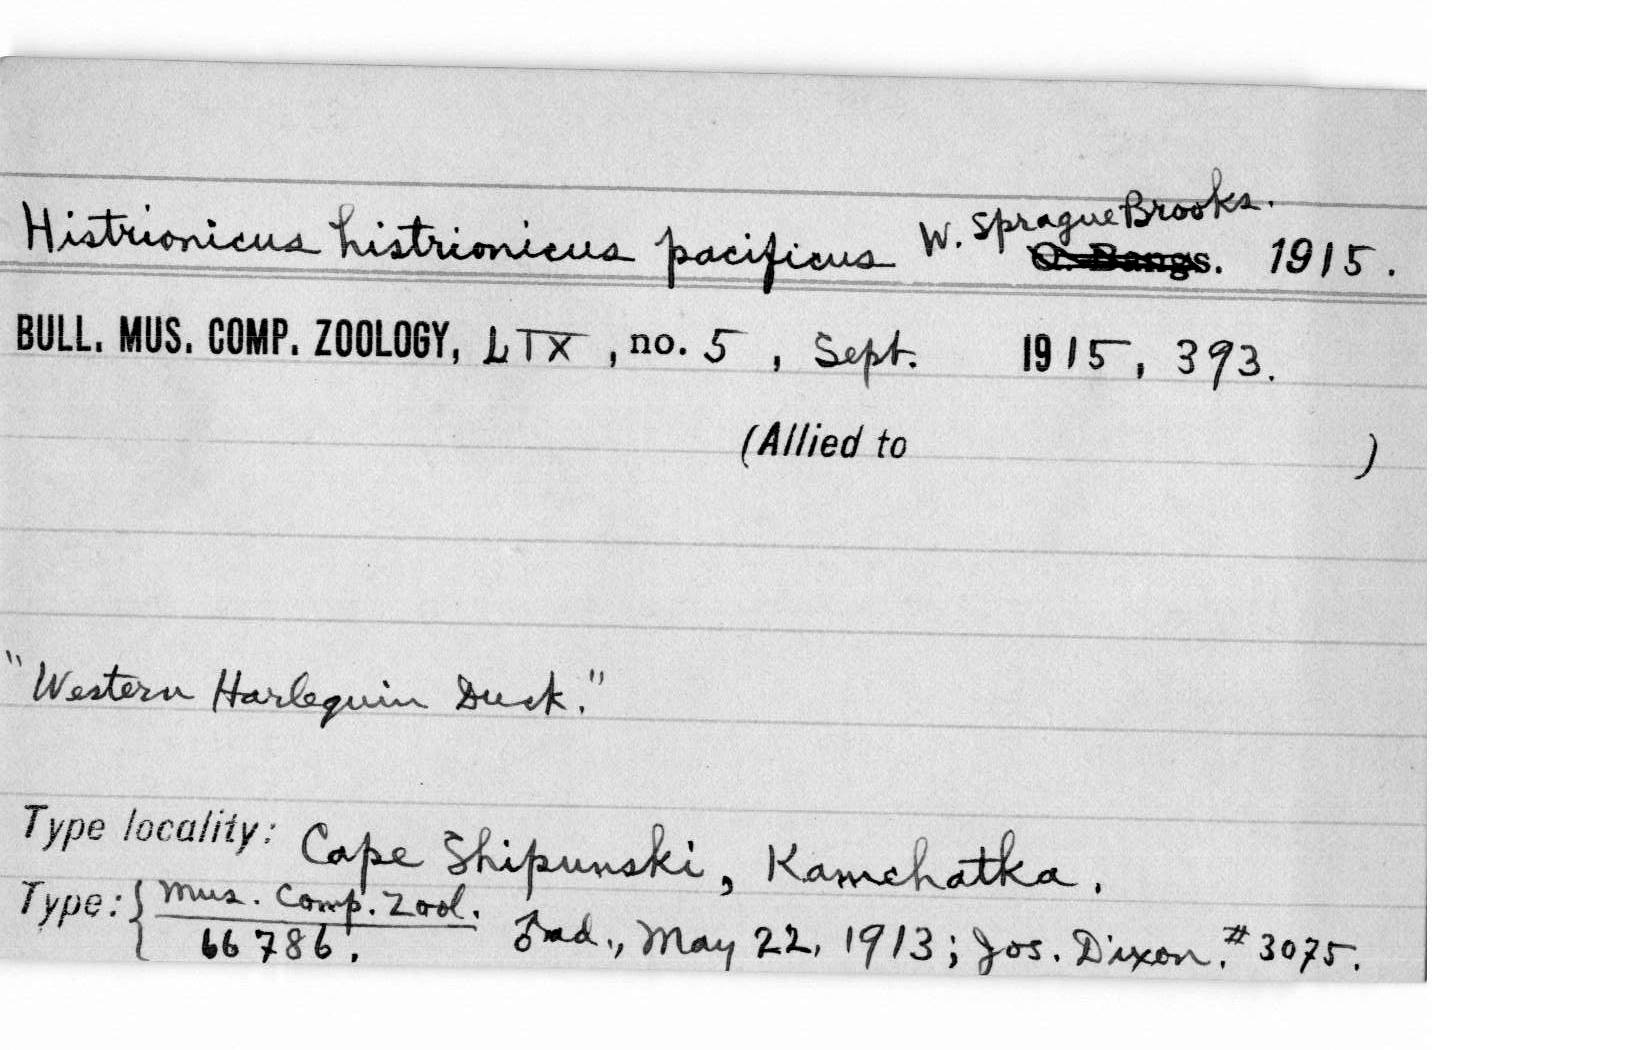 Histrionicus histrionicus pacificus W. Sprague Brooks. O. Bangs. 1915.
BULL. MUS. COMP. ZOOLOGY, LIX, no. 5, Sept. 1915, 393.
(Allied to )
"Western Harlequin Duck."
Type locality: Cape Shipunski, Kamchatka.
Type: { Mus. Comp. Zool.
66786. ♂ ad., May 22, 1913; Jos. Dixon. #3075.